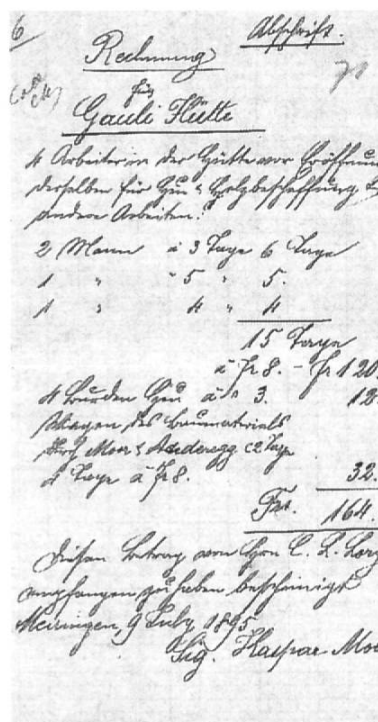 6
Abschrift.
70
Rechnung
für
Gauli Hütte
4 Arbeiter in der Hütte vor Eröffnun
derselben für Heu & Holzbeschaffung &
andere Arbeiten:
2 Mann à 3 Tage 6 Tage
1 " " 5 " 5.
1 " 4 " 4
15 Tage
à Fr 8. - Fr 120
4 Burden Heu à " 3. 12.
Tragen des Baumaterials
Moor & Anderegg à 2 Tage
4 Tage à Fr 8. 32.
Frs. 164.
Diesen Betrag von Hrn C. L. Lory
empfangen zu haben bescheinigt
Meiringen, 9 July 1895
Sig. Kaspar Moo